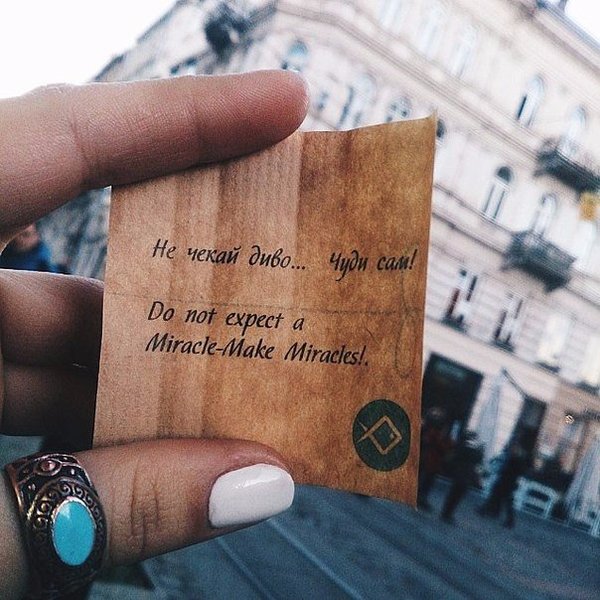 Не чекай диво... Чуди сам!
Do not expect a
Miracle-Make Miracles!.